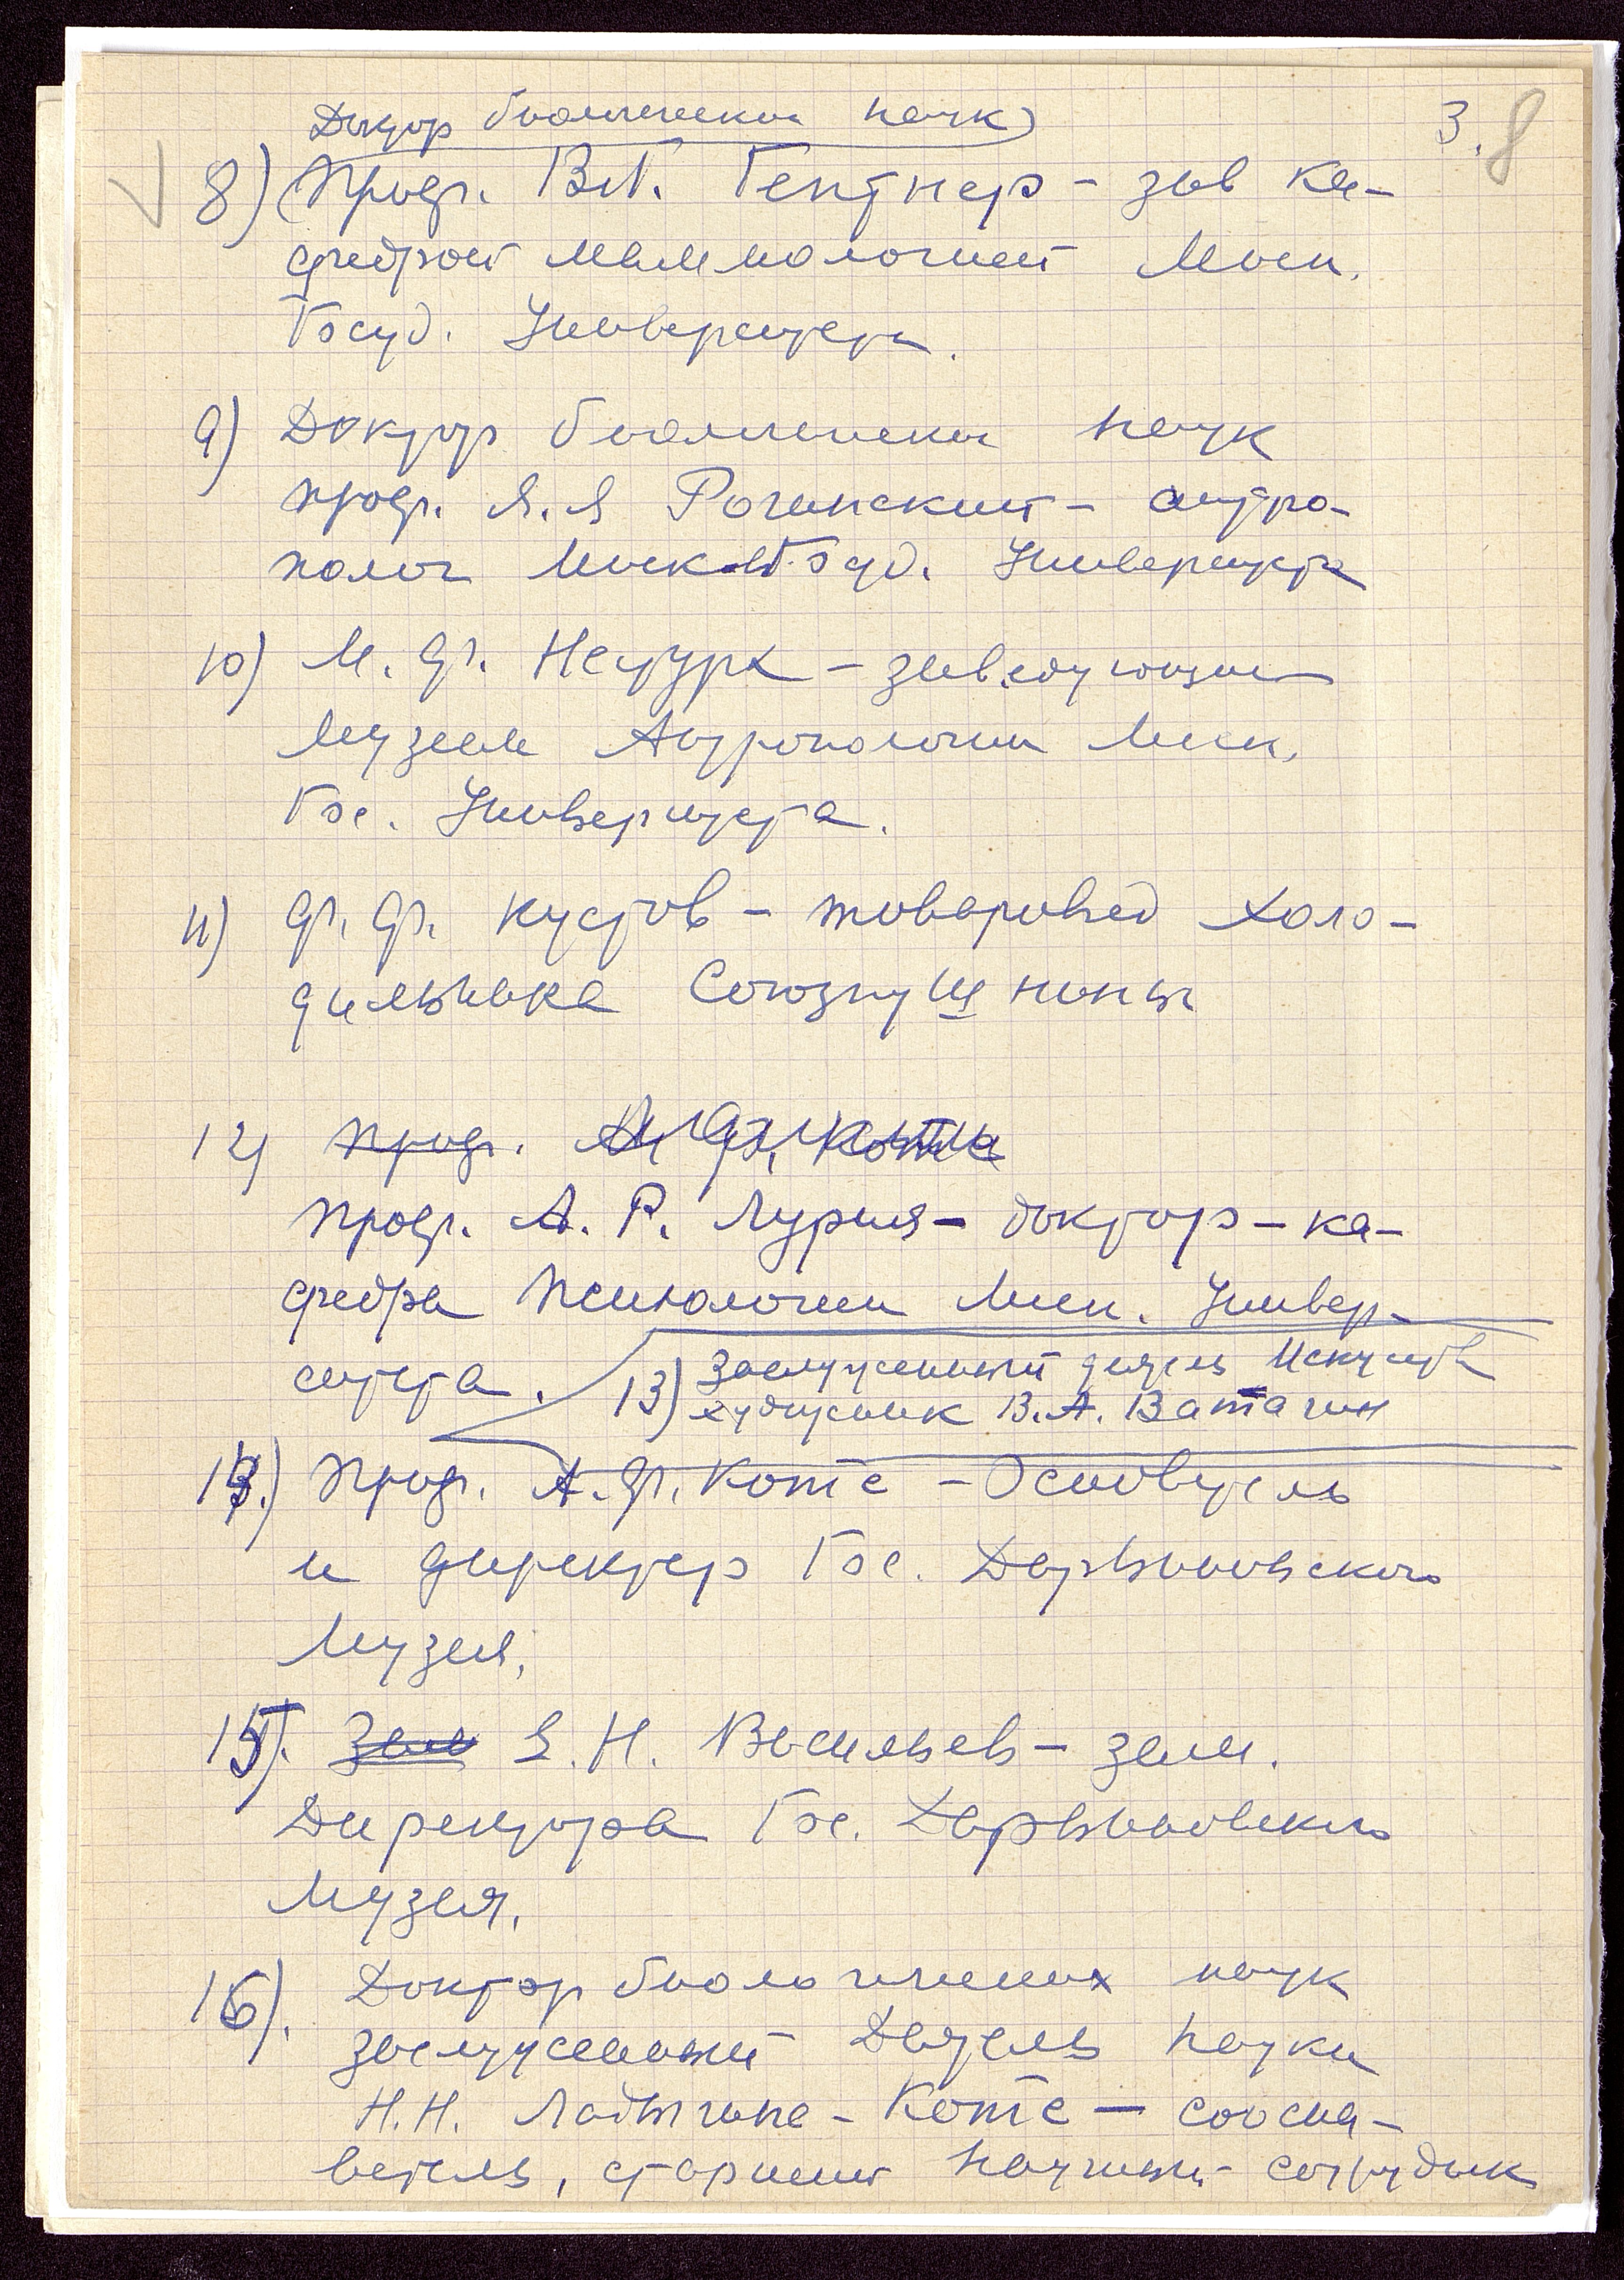 3. 8
Доктор биологических наук
8) Проф. В.Г. Гептнер – зав ка-
федрой маммологией Моск.
Госуд. Университета.
9) Доктор биологических наук
проф. Я.Я Рогинский – антро-
полог Моск. Госуд. Университета
10) М. Ф. Нестурх – заведующий
Музеем Антропологии Моск.
Гос. Университета.
11) Ф. Ф. Кустов – товаровед холо-
дильника Союзпушнины
12) проф. А. Ф. Котс
проф. А. Р. Лурия – доктор – ка-
федра психологии Моск. Универ-
ситета.
13) Заслуженный деятель Искусств
художник В. А. Ватагин
14.) проф. А. Ф. Котс – Основатель
и директор Гос. Дарвиновского
Музея.
15). Зам Е. Н. Васильев – зам.
Директора Гос. Дарвиновского
Музея.
16). Доктор биологических наук
заслуженный Деятель науки
Н. Н. Ладыгина – Котс – соосно-
ватель, старший научный сотрудник